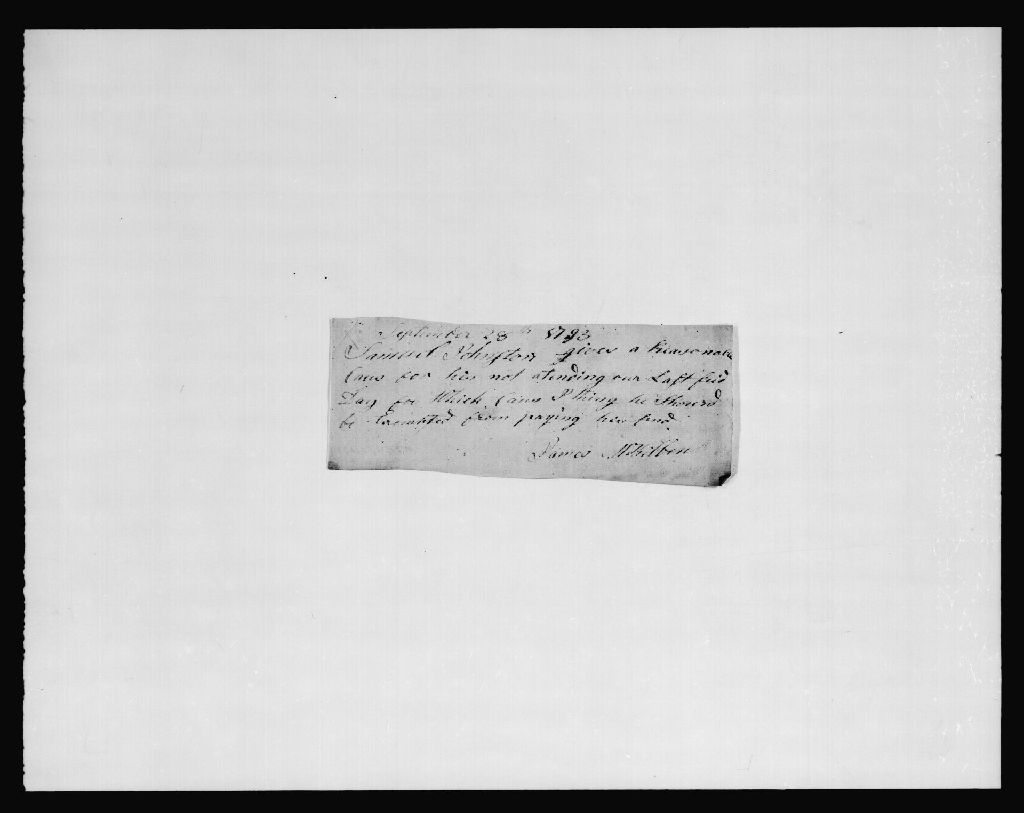 September 28th 1793
Samuel Johnston gives a Reasonable
Caus for his not atending our Last
Day for Which Caus I thing he Should
be Exempted from paying his find
James